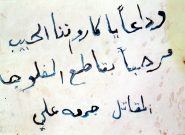 وداعاً يا كاروننا الحبيب
مرحباً بمقاطع الفلوجة
المقاتل جمعه علي